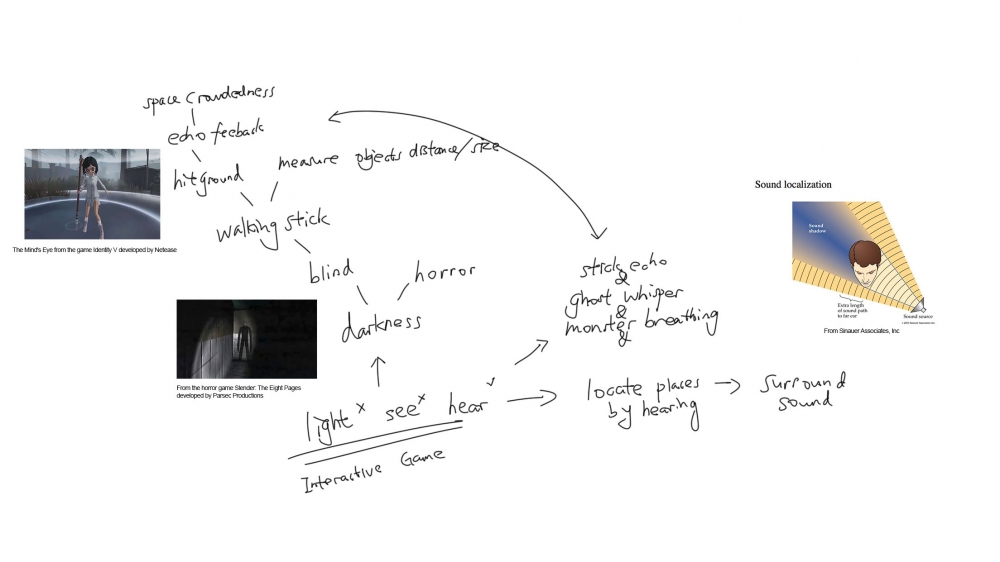 space crowdedness
echo feeback
hit ground
measure objects distance/size
walking stick
blind
horror
darkness
light x see x hear ✓
Interactive Game
The Mind's Eye from the game Identity V developed by Netease
From the horror game Slender: The Eight Pages
developed by Parsec Productions
stick echo
&
ghost whisper
&
monster breathing
&
locate places
by hearing
surround
sound
Sound localization
Sound
shadow
Extra length
of sound path
to far ear
Sound source
From Sinauer Associates, Inc